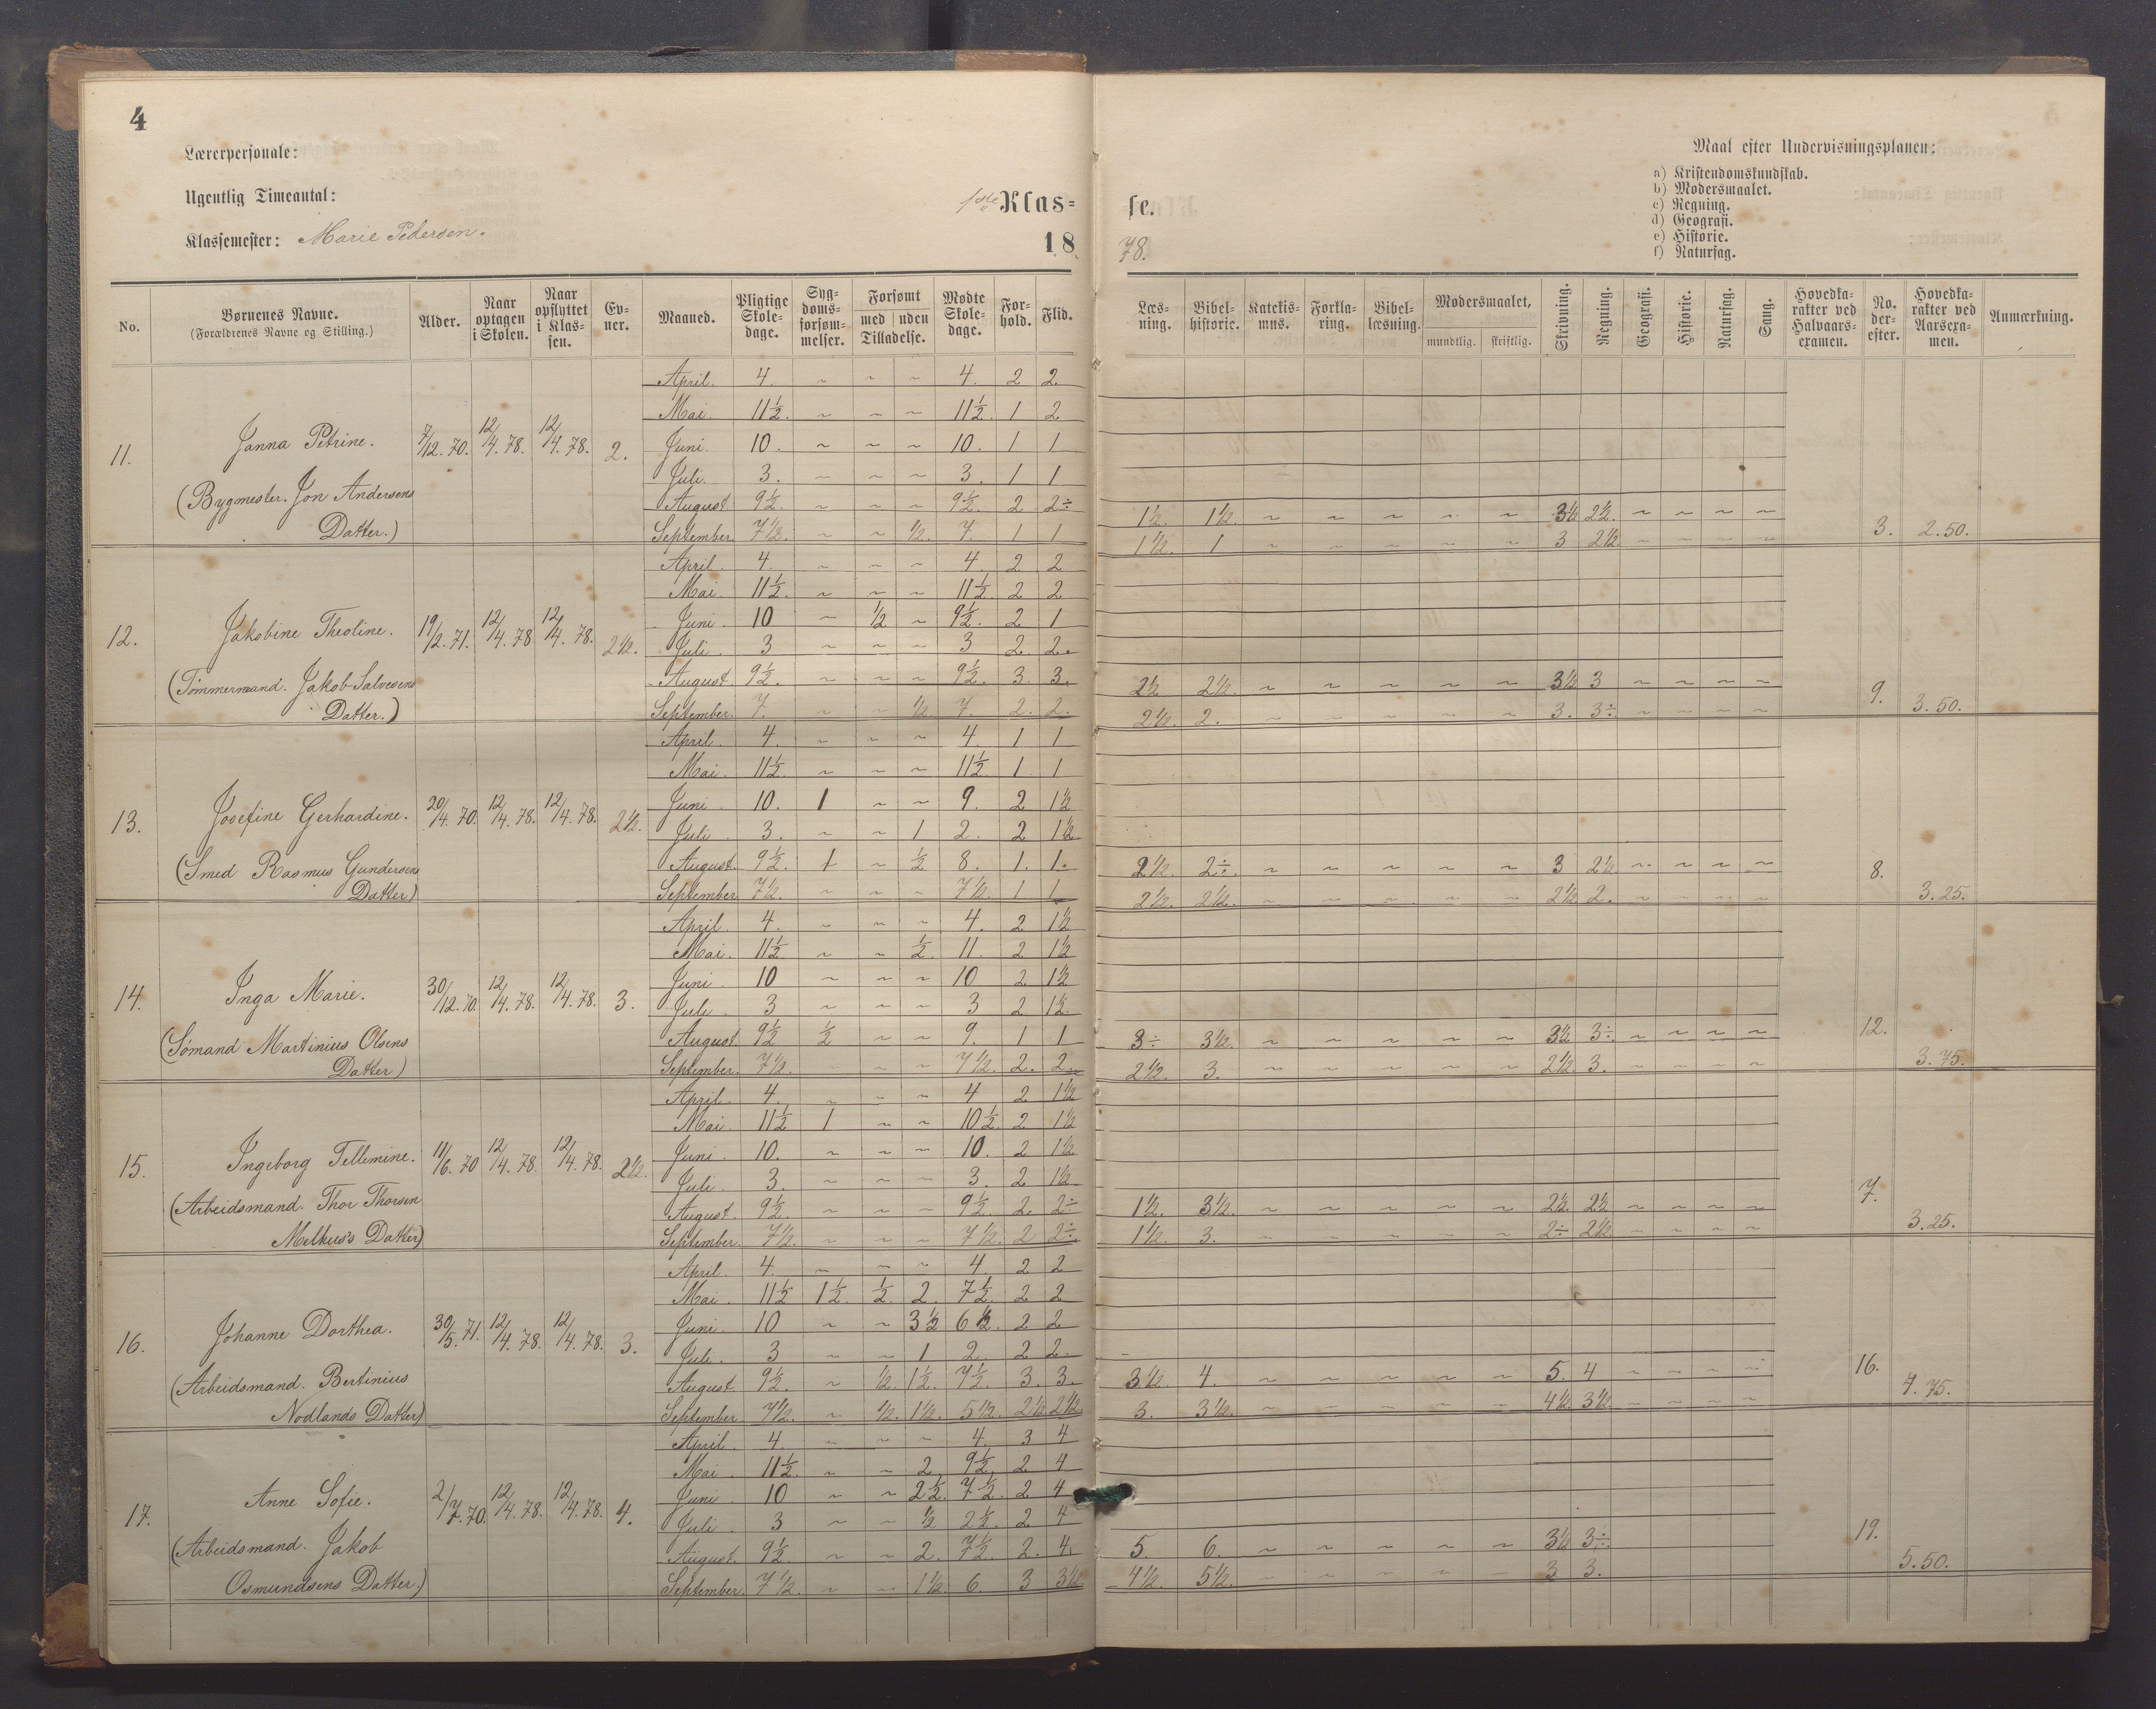 4
Lærerpersonale:
Ugentlig Timeantal:
Klassemester: Marie Pedersen.
1ste Klas- se.
18 78.
Maal efter Undervisningsplanen:
a) Kristendomskundskab.
b) Modersmaalet.
c) Regning.
d) Geografi.
e) Historie.
f) Naturfag.
No. | Børnenes Navne. (Forældrenes Navne og Stilling.) | Alder. | Naar optagen i Skolen. | Naar opflyttet i Klassen. | Evner. | Maaned. | Pligtige Skoledage. | Sygdomsforsømmelser. | Forsømt med uden Tilladelse. | Mødte Skoledage. | Forhold. | Flid. | Læsning. | Bibelhistorie. | Katekismus. | Forklaring. | Bibellæsning. | Modersmaalet, mundtlig. skriftlig. | Skrivning. | Regning. | Geografi. | Historie. | Naturfag. | Sang. | Hovedkarakter ved Halvaarsexamen. | No. derefter. | Hovedkarakter ved Aarsexamen. | Anmærkning.
11. Janna Petrine. 7/12. 70. 12/4. 78. 12/4. 78. 2.
(Bygmester. Jon Andersens
Datter.)
April. 4. ~ ~ ~ 4. 2 2
Mai. 11½. ~ ~ ~ 11½. 1 2
Juni. 10. ~ ~ ~ 10. 1 1
Juli. 3. ~ ~ ~ 3. 1 1
August 9½. ~ ~ ~ 9½. 2 2÷ 1½. 1½. ~ ~ ~ ~ ~ 3½ 2½. ~ ~ ~ ~
September. 7½. ~ ~ ½. 7. 1 1 1½. 1 ~ ~ ~ ~ ~ 3 2½. ~ ~ ~ ~ 3. 2.50.
12. Jakobine Theoline. 19/2. 71. 12/4. 78 12/4. 78. 2½.
(Tømmermand. Jakob Salvesens
Datter.)
April. 4. ~ ~ ~ 4. 2 2
Mai. 11½. ~ ~ ~ 11½. 2 2
Juni. 10 ~ ½ ~ 9½. 2 1
Juli. 3 ~ ~ ~ 3 2. 2.
August. 9½. ~ ~ ~ 9½. 3. 3. 2½ 2½. ~ ~ ~ ~ ~ 3½ 3 ~ ~ ~ ~
September. 7. ~ ~ ½. 7. 2. 2. 2½. 2. ~ ~ ~ ~ ~ 3. 3÷ ~ ~ ~ ~ 9. 3.50.
13. Josefine Gerhardine. 20/4. 70. 12/4. 78. 12/4. 78. 2½.
(Smed Rasmus Gundersens
Datter)
April. 4. ~ ~ ~ 4. 1 1
Mai. 11½. ~ ~ ~ 11½ 1 1
Juni. 10. 1 ~ ~ 9. 2 1½
Juli. 3. ~ ~ 1 2. 2 1½
August. 9½. 1 ~ ½ 8. 1. 1. 2½. 2÷. ~ ~ ~ ~ ~ 3 2½ ~ ~ ~ ~
September. 7½. ~ ~ ~ 7½. 1 1 2½. 2½. ~ ~ ~ ~ ~ 2½ 2. ~ ~ ~ ~ 8. 3.25.
14. Inga Marie. 30/12. 70. 12/4. 78. 12/4. 78. 3.
(Sømand Martinius Olsens
Datter)
April. 4. ~ ~ ~ 4. 2 1½
Mai. 11½. ~ ~ ½. 11. 2 1½
Juni. 10 ~ ~ ~ 10 2 1½
Juli. 3 ~ ~ ~ 3 2 1½.
August. 9½ ½ ~ ~ 9. 1 1 3÷ 3½. ~ ~ ~ ~ ~ 3½ 3÷. ~ ~ ~ ~
September. 7½. ~ ~ ~ 7½. 2. 2. 2½. 3. ~ ~ ~ ~ ~ 2½. 3. ~ ~ ~ ~ 12. 3.75.
15. Ingeborg Tellemine. 11/6. 70 12/4. 78. 12/4. 78. 2½.
(Arbeidsmand. Thor Thorsen
Melkus's Datter)
April. 4. ~ ~ ~ 4 2 1½
Mai. 11½ 1 ~ ~ 10½. 2 1½
Juni. 10. ~ ~ ~ 10. 2 1½
Juli. 3. ~ ~ ~ 3. 2 1½.
August. 9½. ~ ~ ~ 9½. 2 2÷ 1½. 3½. ~ ~ ~ ~ ~ 2½. 2½ ~ ~ ~ ~
September. 7½. ~ ~ ~ 7½. 2 2÷. 1½. 3. ~ ~ ~ ~ ~ 2÷ 2½. ~ ~ ~ ~ 7. 3.25.
16. Johanne Dorthea. 30/5. 71. 12/4. 78. 12/4. 78. 3.
(Arbeidsmand. Bertinius
Nodlands Datter)
April. 4. ~ ~ ~ 4. 2 2
Mai. 11½ 1½. ½. 2. 7½. 2 2
Juni. 10 ~ ~ 3½ 6½. 2 2
Juli. 3 ~ ~ 1 2. 2 2.
August. 9½. ~ ½. 1½. 7½. 3. 3. 3½. 4. ~ ~ ~ ~ ~ 5. 4 ~ ~ ~ ~
September 7½. ~ ½. 1½. 5½. 2½ 2½ 3. 3½. ~ ~ ~ ~ ~ 4½. 3½. ~ ~ ~ ~ 16. 4.75.
17. Anne Sofie. 2/7. 70. 12/4. 78. 12/4. 78. 4.
(Arbeidsmand. Jakob
Osmundsens Datter.)
April. 4. ~ ~ ~ 4. 3 4
Mai. 11½. ~ ~ 2 9½. 2 4
Juni. 10 ~ ~ 2½. 7½. 2 4
Juli. 3 ~ ~ ½ 2½. 2 4
August. 9½. ~ ~ 2. 7½. 2. 4. 5. 6. ~ ~ ~ ~ ~ 3½ 3÷.
September. 7½. ~ ~ 1½. 6. 3 3½ 4½. 5½. ~ ~ ~ ~ ~ 3 3. 19. 5.50.